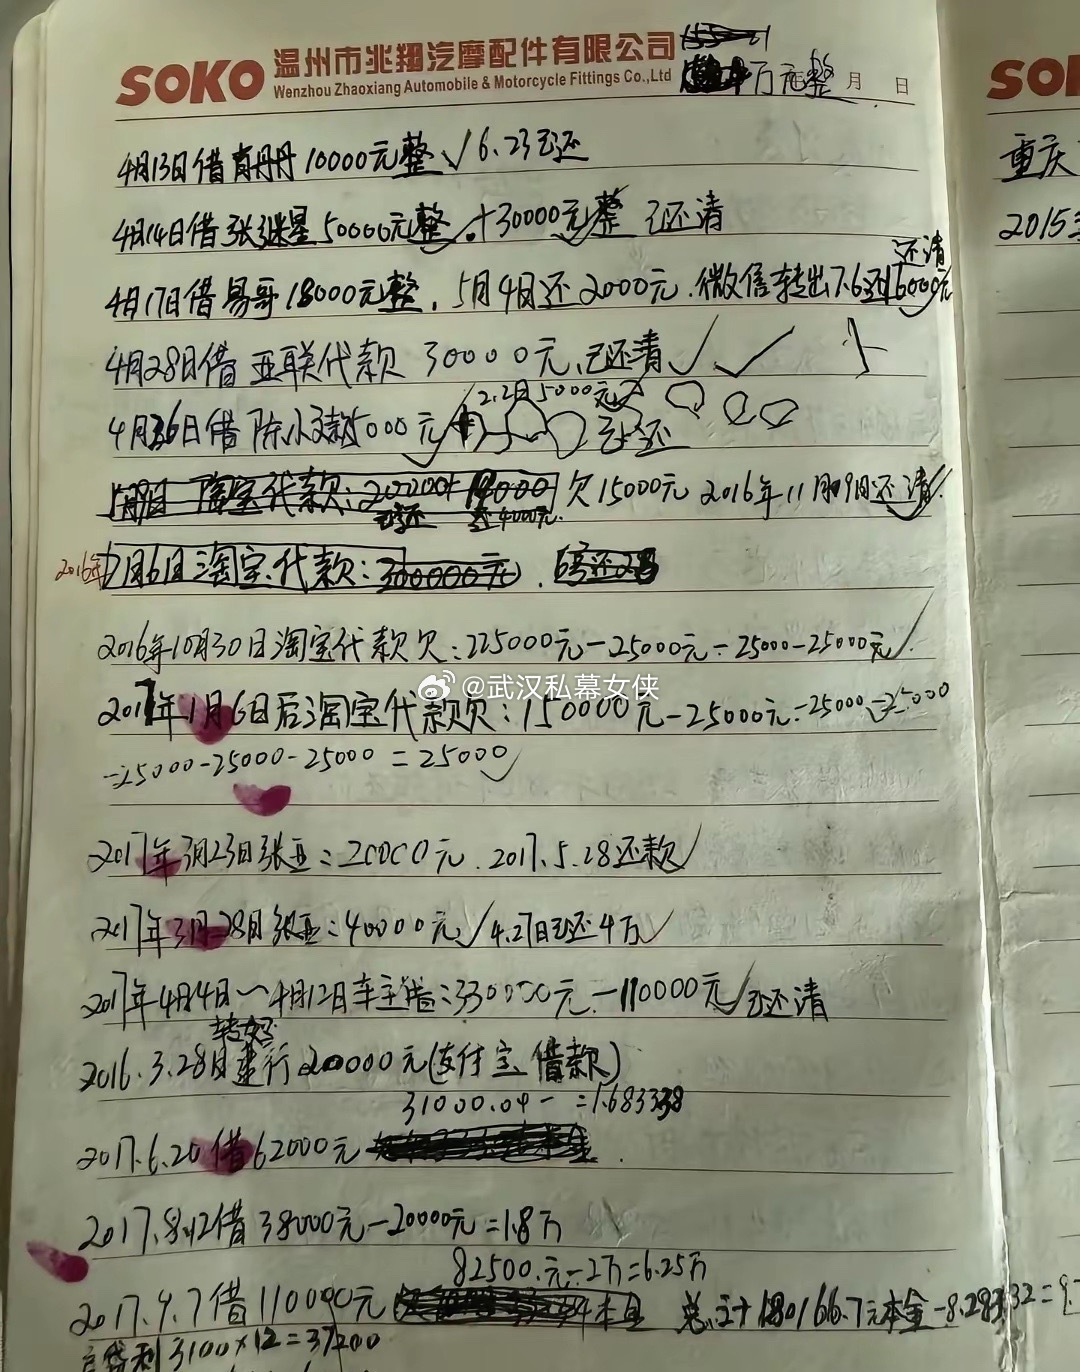 SOKO 温州市兆翔汽摩配件有限公司
Wenzhou Zhaoxiang Automobile & Motorcycle Fittings Co.,Ltd
万元整 月 日
4月13日借肖丹丹10000元整√6.23已还
4月14日借张继星50000元整√+30000元整 已还清
还清
4月17日借易哥18000元整,5月4日还2000元.微信转出7.6还16000元
4月28日借亚联代款30000元,已还清√√
2.2日5000元
4月26日借陈小 款5000元 已还
淘宝代款:200000+ 14000 欠15000元 2016年11月09日还清
已还 还4000元
2016年7月6日淘宝代款:300000元.
2016年10月30日淘宝代款欠:225000元-25000元-25000-25000元√
@武汉私募女侠
2017年1月6日后淘宝代款欠:150000元-25000元-25000-25000
-25000-25000-25000=25000√
2017年3月23日张亚:20000元.2017.5.28还款√
2017年3月28日张亚:40000元√4.27日已还4万√
2017年4月4日~4月12日车主借:330000元-110000元√已还清
转好
2016.3.28日建行200000元(支付宝借款)
31000.04- =1.683338
2017.6.20借62000元
2017.8.12借38000元-20000元=1.8万
82500.元-2万=6.25万
2017.9.7借110000元 本息 总计180166.7元本金-8.28332=9.
贷利3100×12=37200
SO
重庆
2015